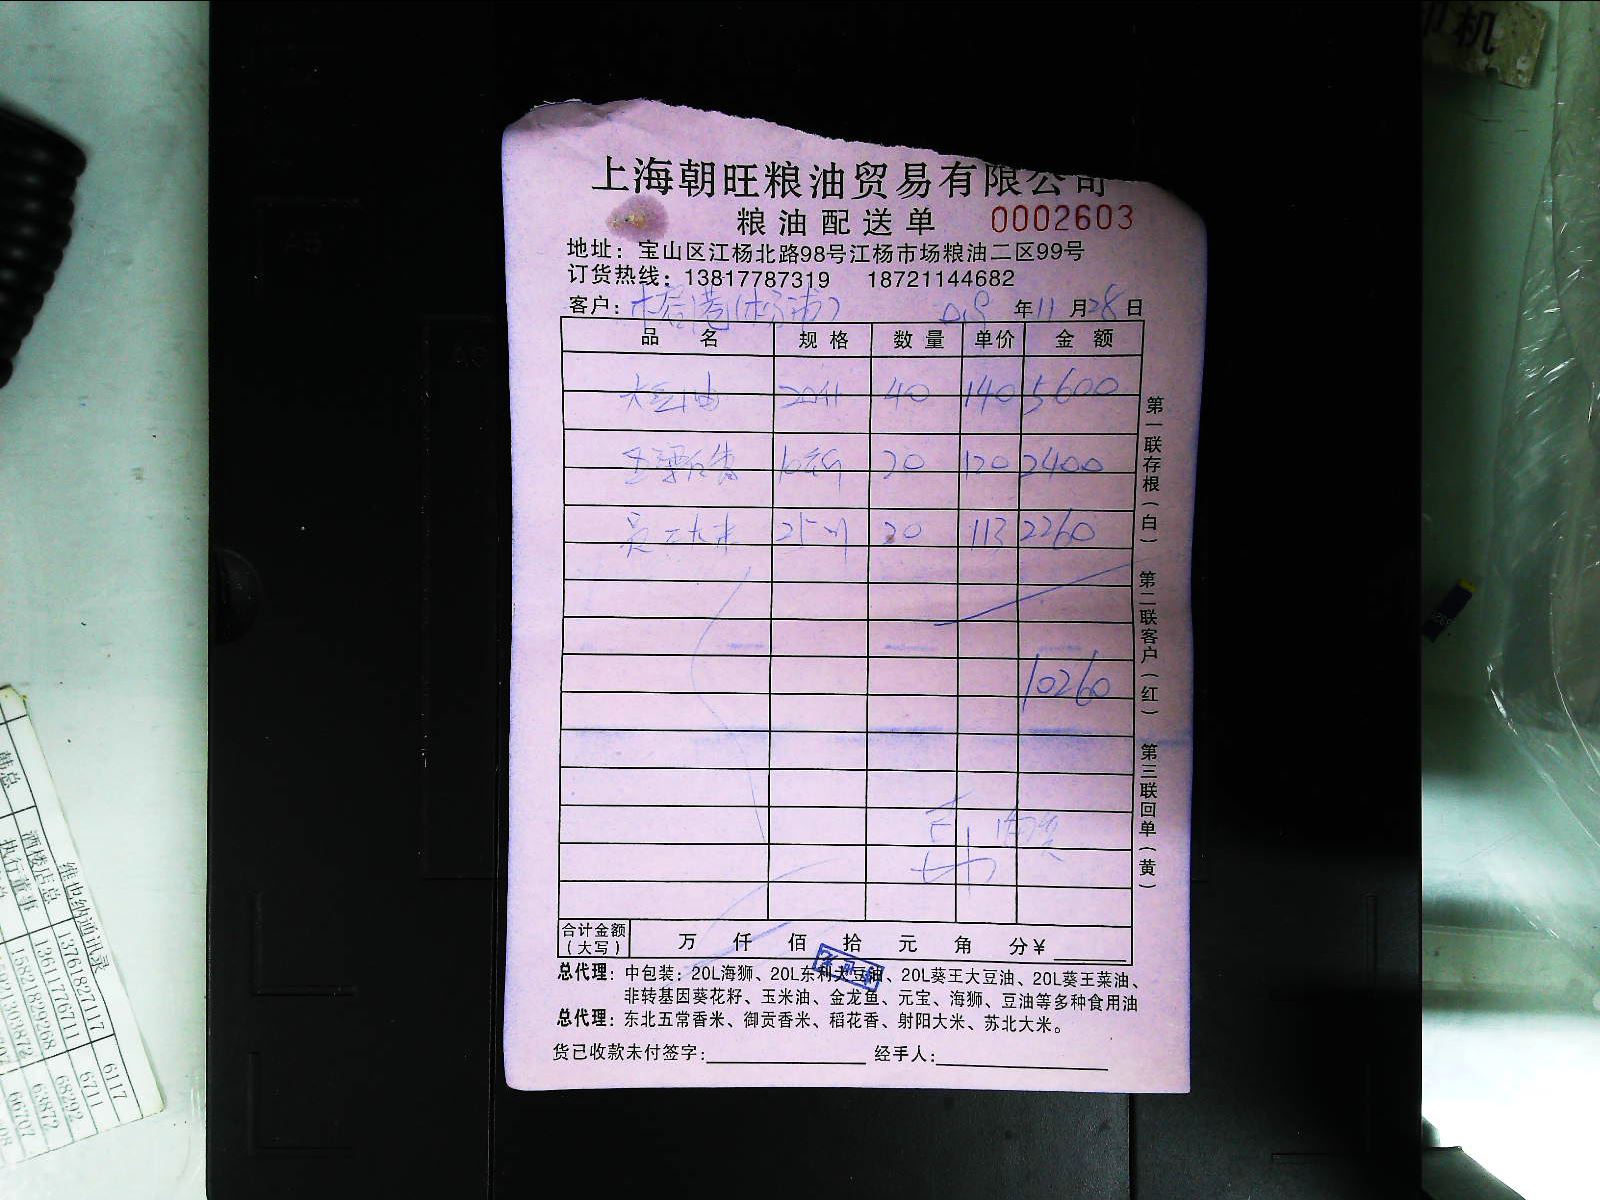 印机
上海朝旺粮油贸易有限公司
粮油配送单 0002603
地址：宝山区江杨北路98号江杨市场粮油二区99号
订货热线：13817787319 18721144682
客户： 年11月28日
品名 规格 数量 单价 金额
大豆油 20升 40 140 5600
20 120 2400
大米 25 20 113 2260
10260
合计金额（大写） 万 仟 佰 拾 元 角 分¥
总代理：中包装：20L海狮、20L东利大豆油、20L葵王大豆油、20L葵王菜油、
非转基因葵花籽、玉米油、金龙鱼、元宝、海狮、豆油等多种食用油
总代理：东北五常香米、御贡香米、稻花香、射阳大米、苏北大米。
货已收款未付签字： 经手人：
第一联存根（白） 第二联客户（红） 第三联回单（黄）
维也纳通讯录
酒楼卢总 13761827117 6117
执行董事 13611776711 6711
15821829268 68292
63872
66707